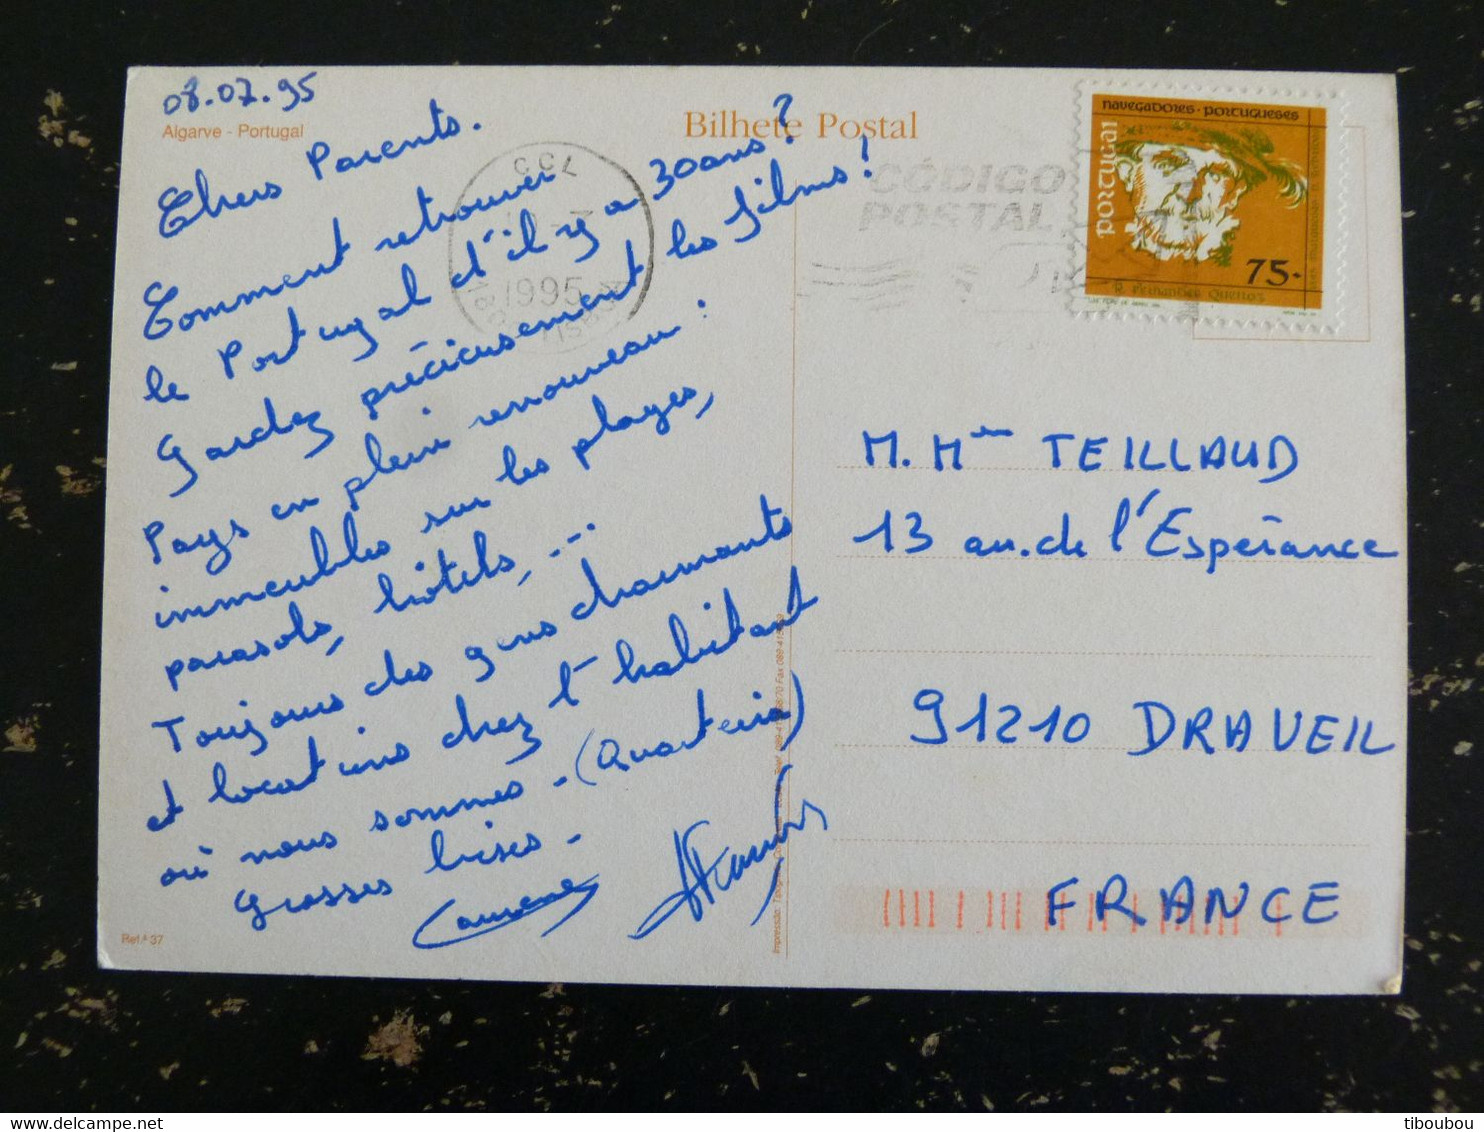 08.07.95
Algarve - Portugal
Bilhete Postal
Chers Parents.
Comment retrouver
le Portugal d'il y a 30 ans ?
Gardez précieusement les films !
Pays en plein renouveau :
immeubles sur les plages,
parasols, hôtels, ...
Toujours des gens charmants
et locations chez l'habitant
où nous sommes - (Quarteira)
Grosses bises -
Ref.ª 37
CCL
1995
CÓDIGO
POSTAL
NAVEGADORES · PORTUGUESES
PORTUGAL
75-
P. Fernandes Queiros
M. Mme TEILLAUD
13 av. de l'Espérance
91210 DRAVEIL
FRANCE
tiboubou